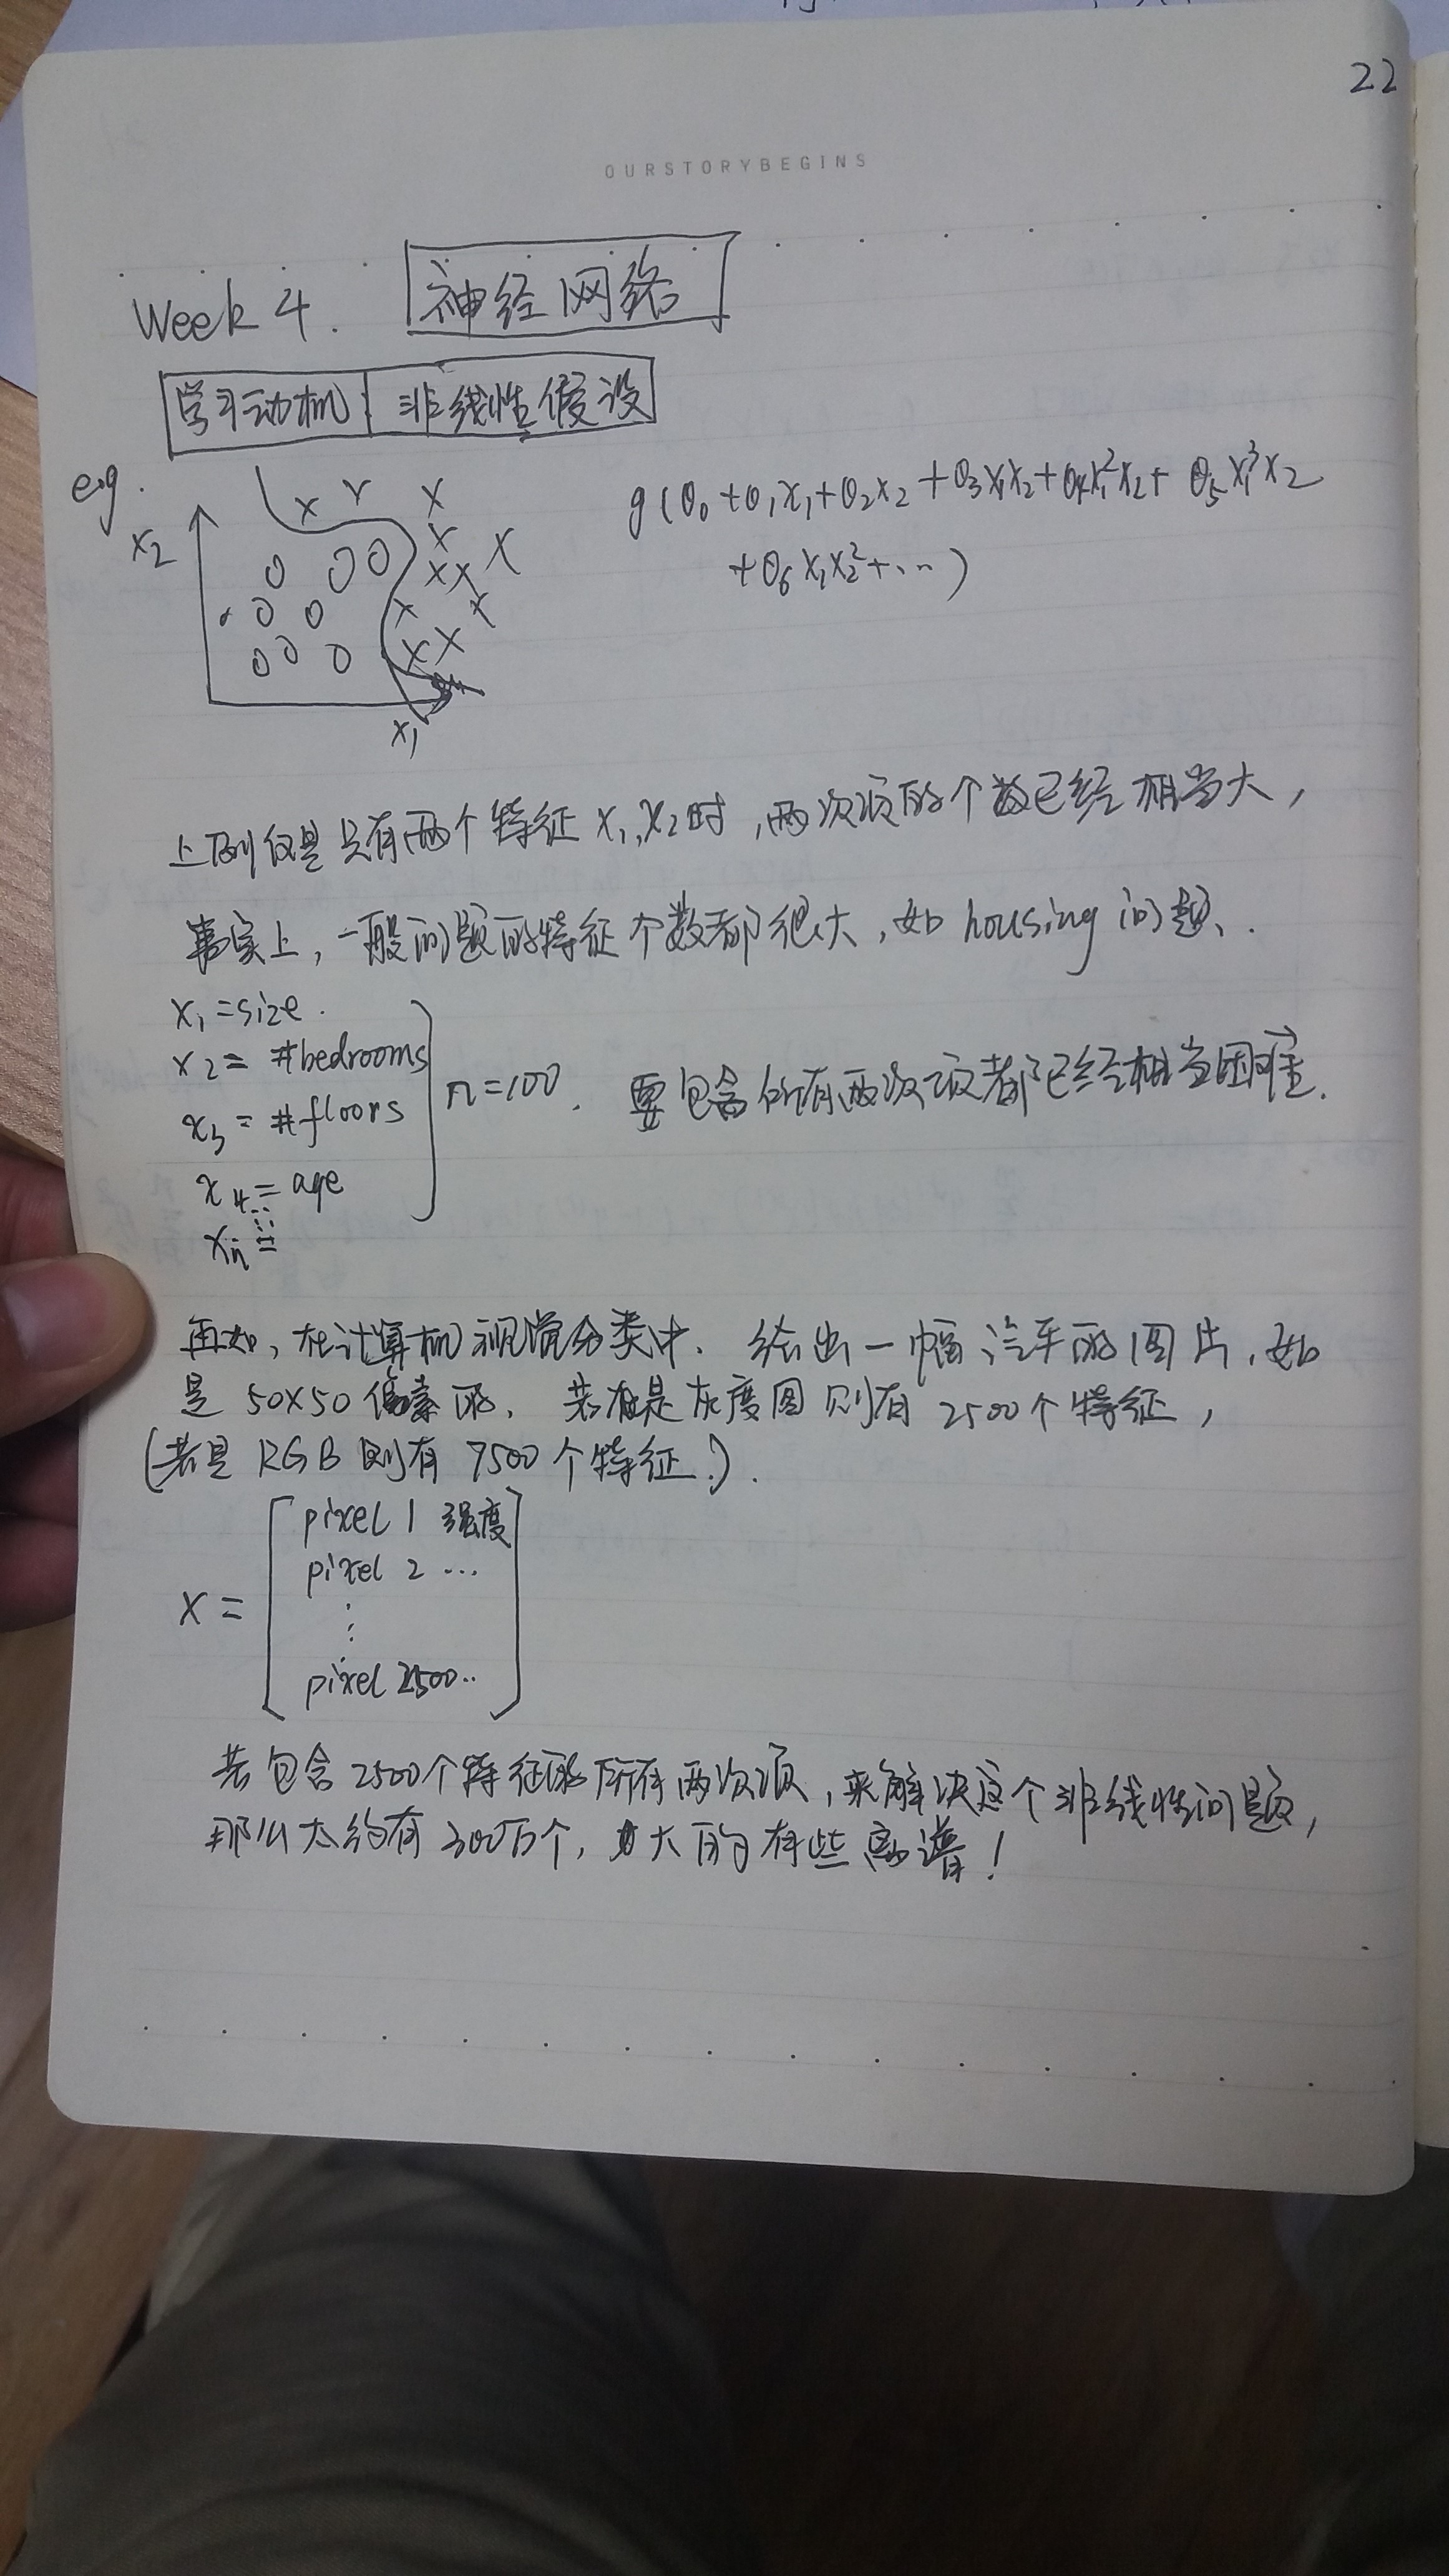 22
OURSTORYBEGINS
Week 4. 神经网络
学习动机 非线性假设
e.g.
x₂
x₁
g(θ₀+θ₁x₁+θ₂x₂+θ₃x₁x₂+θ₄x₁²x₂+θ₅x₁³x₂
+θ₆x₁x₂²+…)
上例仅是只有两个特征x₁,x₂时,两次项的个数已经相当大,
事实上,一般问题的特征个数都很大,如housing问题、.
x₁=size.
x₂=#bedrooms
x₃=#floors
x₄=age
xₙ=
n=100. 要包含所有两次项都已经相当困难.
再如,在计算机视觉分类中.给出一幅汽车的图片,如
是50×50像素的,若是灰度图则有2500个特征,
(若是RGB则有7500个特征.).
x=
pixel 1 强度
pixel 2 …
⋮
pixel 2500..
若包含2500个特征的所有两次项,来解决这个非线性问题,
那么大约有300万个,大的有些离谱!